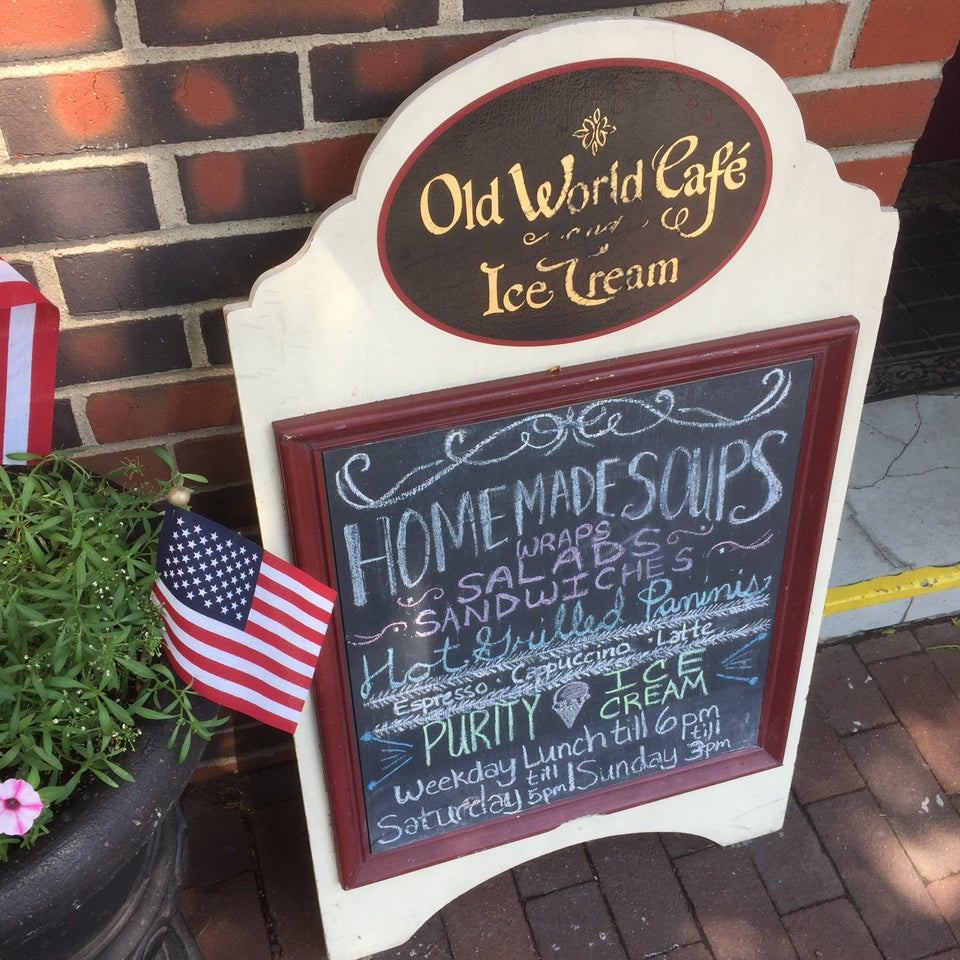 Old World Café
Ice Cream
HOMEMADE SOUPS
WRAPS
SALADS
SANDWICHES
Hot Grilled Paninis
Espresso · Cappuccino · Latte
PURITY ICE CREAM
Weekday Lunch till 6pm
Saturday till 5pm | Sunday till 3pm